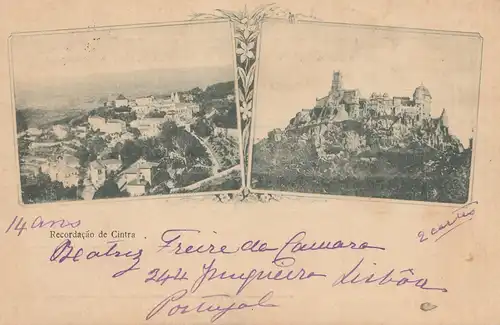 14 anos
Recordação de Cintra
Beatriz Freire da Camara
244 Junqueira Lisbôa
Portugal
2 cartões